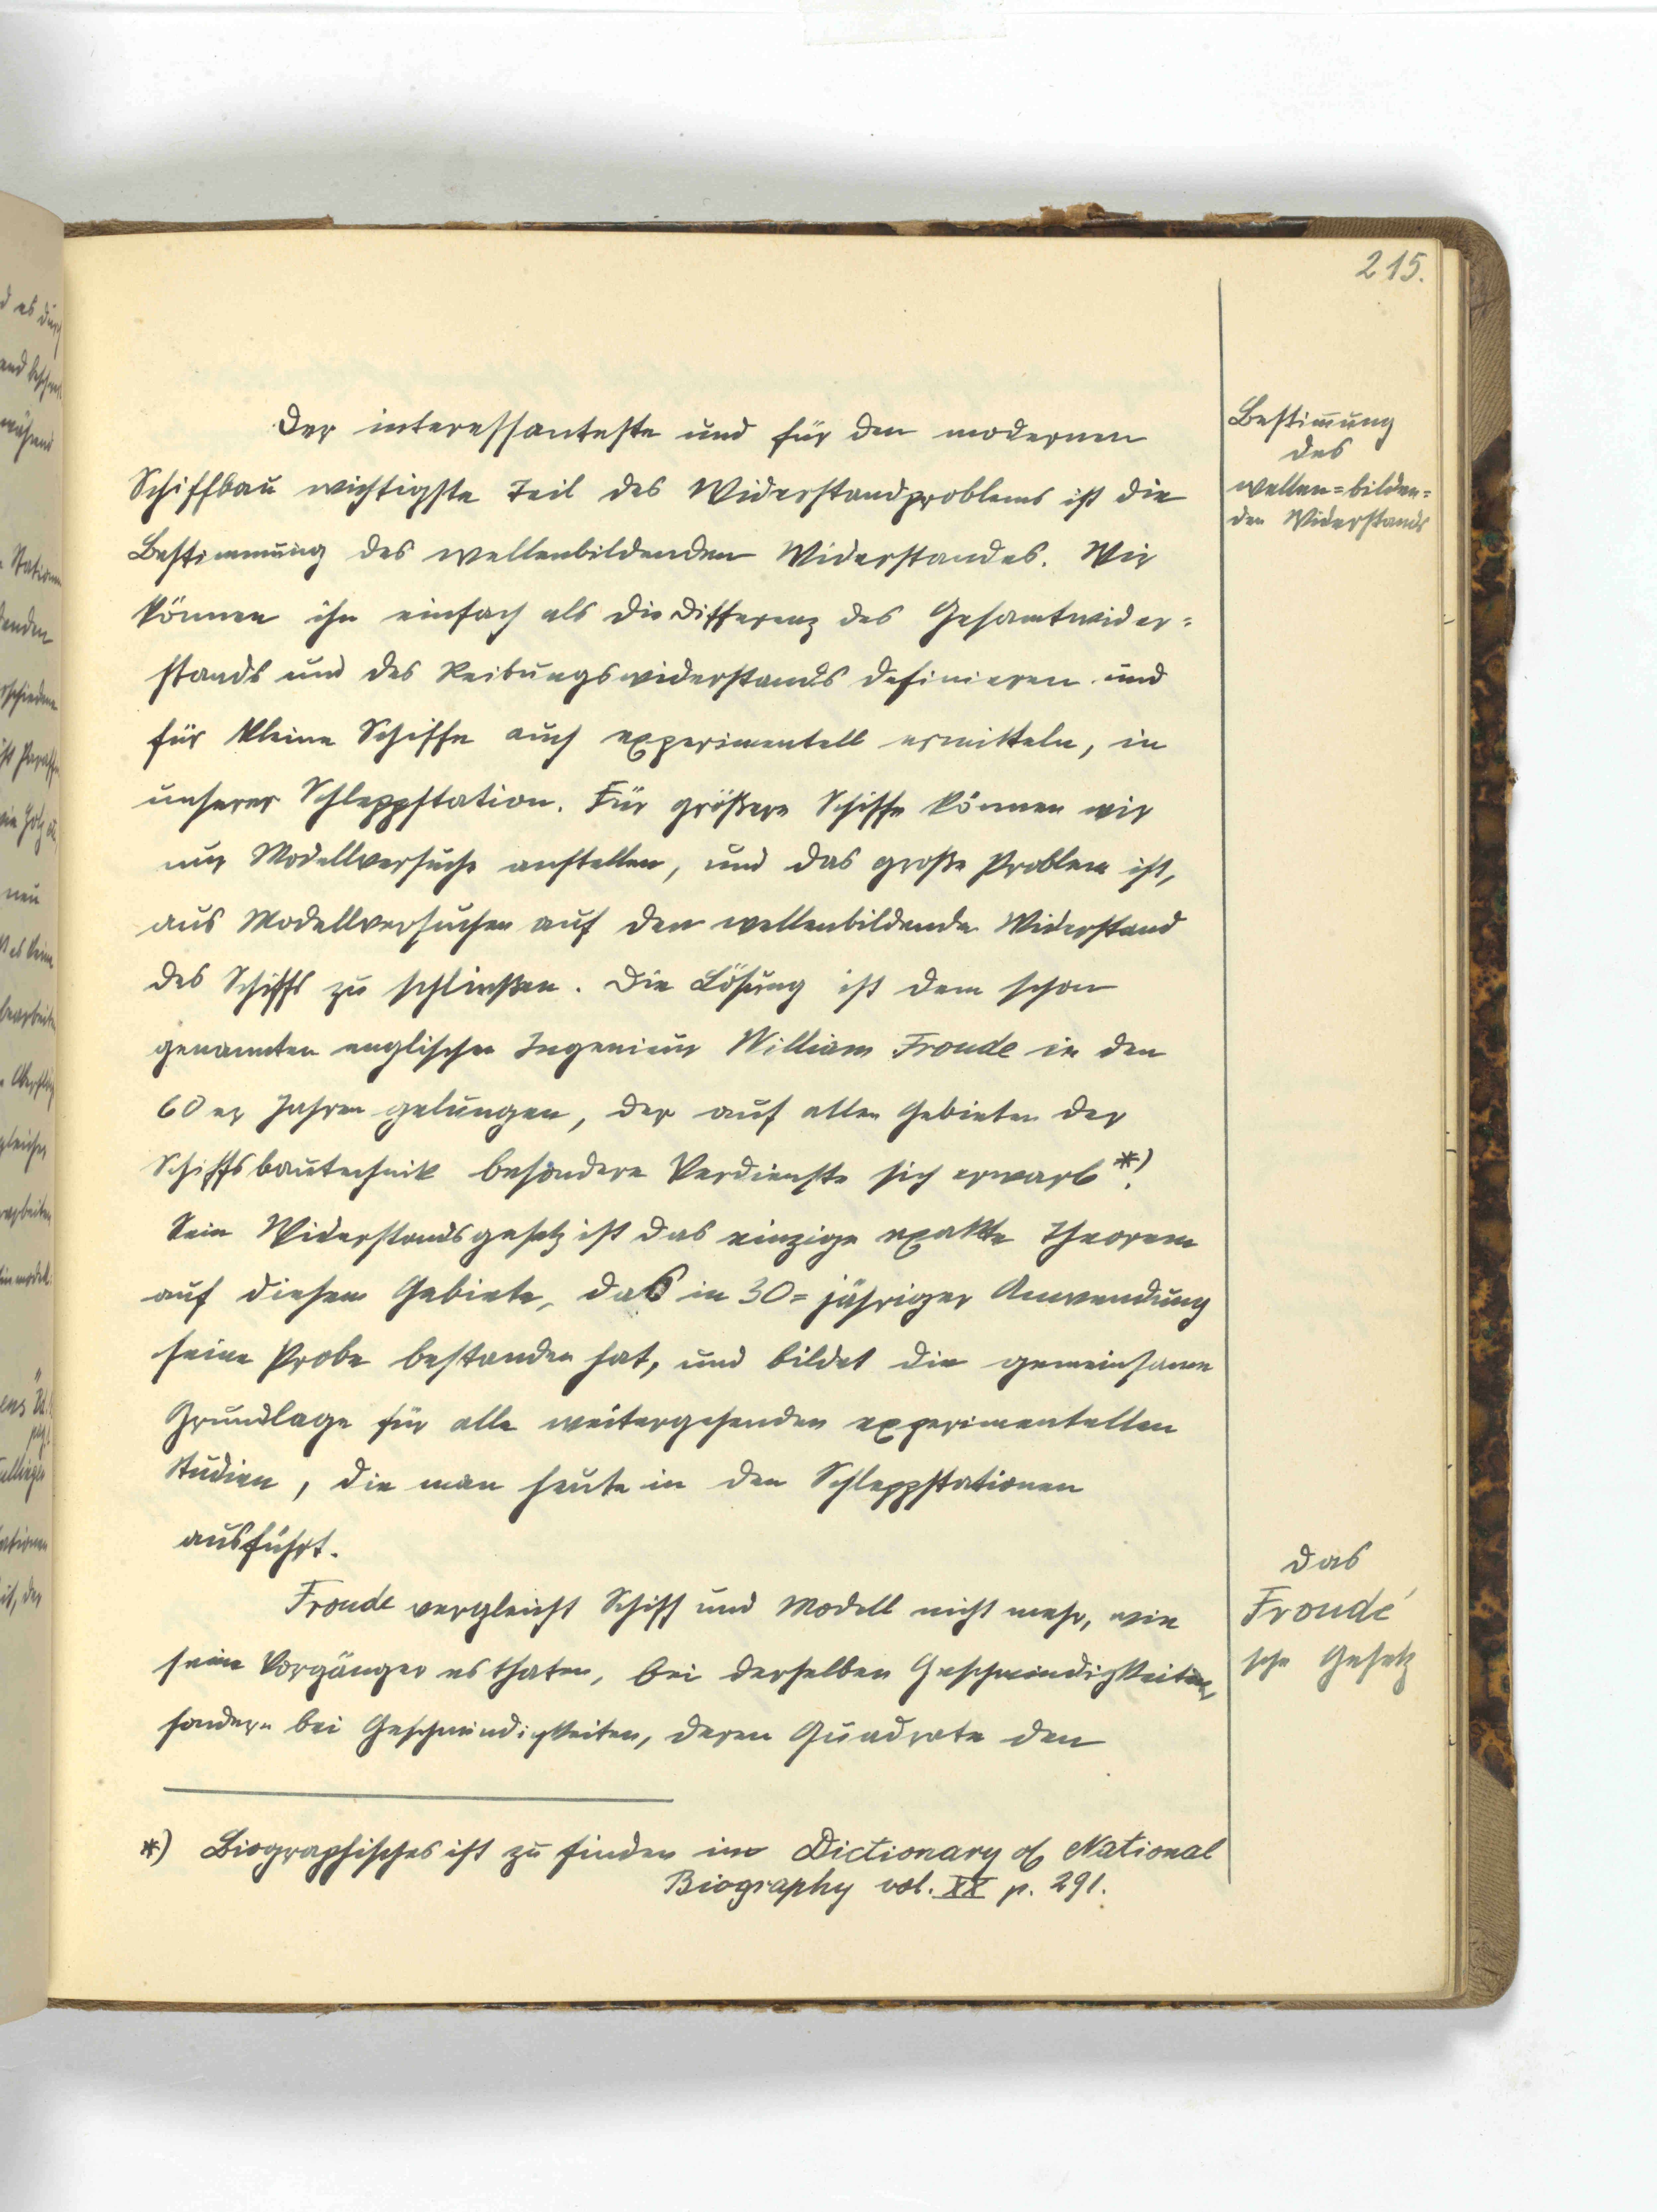 215.
Der interessanteste und für den modernen
Schiffbau wichtigste Teil des Widerstandproblems ist die
Bestimmung des wellenbildenden Widerstandes. Wir
können ihn einfach als die Differenz des Gesamtwider=
stands und des Reibungswiderstands definieren und
für kleine Schiffe auch experimentell ermitteln, in
unserer Schleppstation. Für größere Schiffe können wir
nur Modellversuche anstellen, und das große Problem ist,
aus Modellversuchen auf den wellenbildenden Widerstand
des Schiffs zu schließen. Die Lösung ist dem schon
genannten englischen Ingenieur William Froude in den
60er Jahren gelungen, der auf allen Gebieten der
Schiffsbautechnik besondere Verdienste sich erwarb *).
Sein Widerstandsgesetz ist das einzige exakte Theorem
auf diesem Gebiete, das in 30=jähriger Anwendung
seine Probe bestanden hat, und bildet die gemeinsame
Grundlage für alle weitergehenden experimentellen
Studien, die man heute in den Schleppstationen
ausführt.
Froude vergleicht Schiff und Modell nicht mehr, wie
seine Vorgänger es thaten, bei derselben Geschwindigkeiten,
sondern bei Geschwindigkeiten, deren Quadrate den
*) Biographisches ist zu finden im Dictionary of National
Biography vol. XX p. 291.
Bestim̄ung
des
wellen=bilden=
den Widerstands
Das
Froude'
sche Gesetz